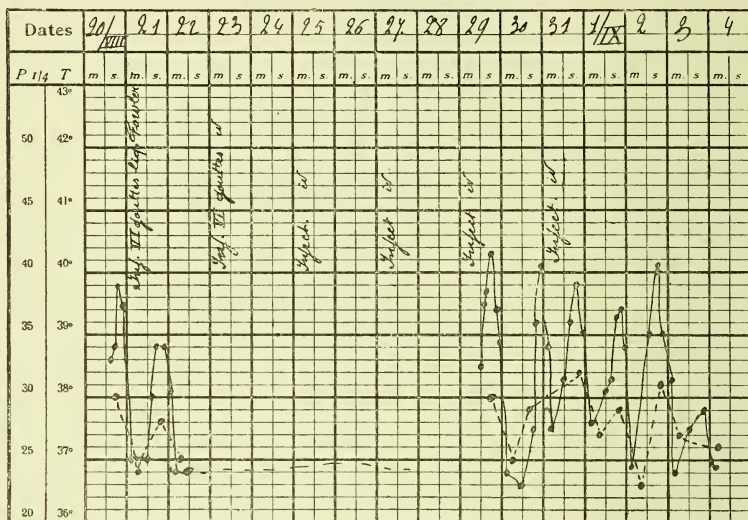 Dates 20/VIII 21 22 23 24 25 26 27. 28 29 30 31 1/IX 2 3 4
P 1/4 T m s. m. s. m. s m s m s m. s m. s. m s m s m s m. s. m s m s m s m s m. s
43°
50 42°
45 41°
40 40°
35 39°
30 38°
25 37°
20 36°
Inj. VI gouttes liq. Fowler
Inj. VI gouttes id
Inject. id
Inject id
Inject id
Inject. id